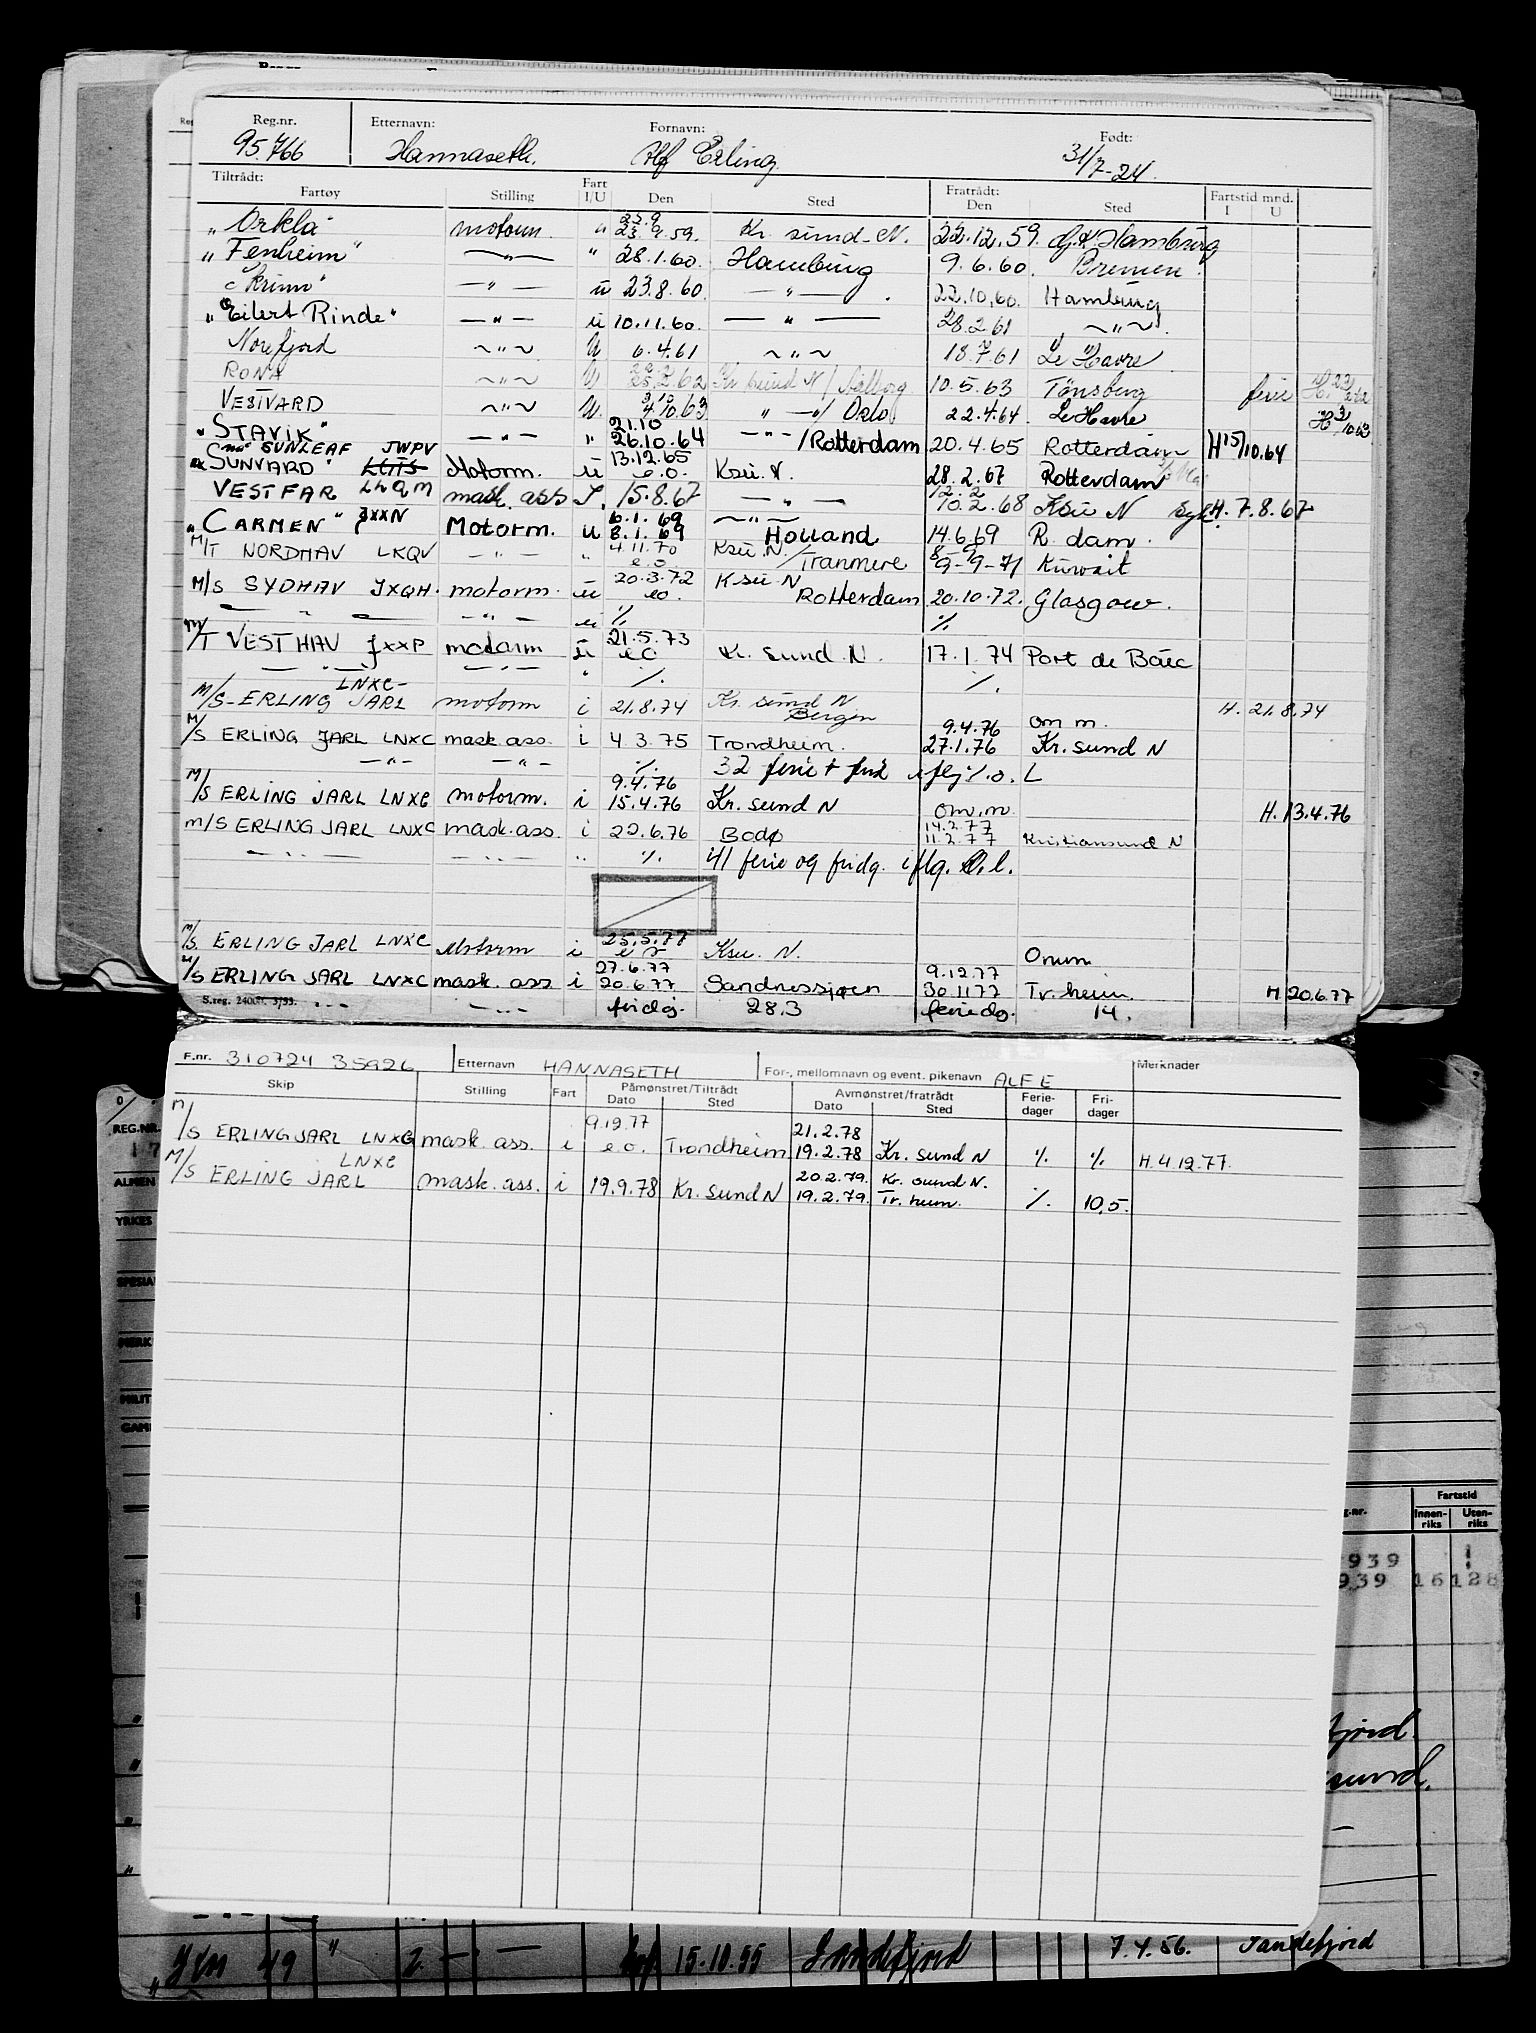 Reg.nr. Etternavn: Fornavn: Født:
95.766 Hannaseth. Alf Erling 31/7-24.
Tiltrådt: Fratrådt: Fartstid mnd.
Fartøy Stilling Fart I/U Den Sted Den Sted I U
22.9
"Orkla" motorm. " 23.9.59. Kr. sund. N. 22.12.59. Hamburg
"Fenheim" — " — " 28.1.60. Hamburg 9.6.60. Bremen.
"Skrim" — " — u 23.8.60. — " — 22.10.60. Hamburg
"Eilert Rinde" — " — u 10.11.60. — " — 28.2.61 ~ " ~
Norefjord ~ " ~ U 6.4.61 ~ " ~ 18.7.61 Le Havre
RONA ~ " ~ U 25.2.62 Kr sund N / Aalborg 10.5.63 Tønsberg ferie
VESTVARD ~ " ~ U 4.10.63 " — " / Oslo 22.4.64 Le Havre
21.10
"STAVIK" — " — " 26.10.64 — " — /Rotterdam 20.4.65 Rotterdam H 15/10.64
SUNLEAF JWPV 13.12.65
ex SUNVARD" Motorm. u e.o. Ksu. N. 28.2.67 Rotterdam
12.2
VESTFAR LHQM mask. ass I. 15.8.67 — " — 10.2.68 Ksu N syk H. 7.8.67
6.1.69
"CARMEN" JXXN Motorm. u 8.1.69 Holland 14.6.69 R. dam.
4.11.70 Ksu. N.
M/T NORDHAV LKQV - " - " e.o. /Tranmere 9-9-71 Kuwait
20.3.72 Ksu N
M/S SYDHAV JXQH. motorm. u eo. Rotterdam 20.10.72. Glasgow.
— " — - " - u % %
21.5.73
M/T VESTHAV JXXP motorm u eo Kr. sund. N. 17.1.74 Port de Bouc
— " — - " - " %. %.
LNXC-
M/S-ERLING JARL motorm i 21.8.74 Kr. sund N Bergen H. 21.8.74
9.4.76 om m.
M/S ERLING JARL LNXC mask. ass. i 4.3.75 Trondheim. 27.1.76 Kr. sund N
— " - - " - %. 32 ferie + frid iflg %.o. L
9.4.76
M/S ERLING JARL LNXC motorm. i 15.4.76 Kr. sund N om.m. H. 13.4.76
14.2.77
M/S ERLING JARL LNXC mask. ass. i 20.6.76 Bodø 11.2.77 Kristiansund N
- " - - " - " %. 41 ferie og fridg. iflg. O.l.
25.5.77
M/S ERLING JARL LNXC Motorm i Ksu. N. Omm
27.6.77 9.12.77
M/S ERLING JARL LNXC mask. ass i 20.6.77 Sandnessjøen 30.11.77 Tr. heim. H 20.6.77
S.reg. 2400 3/53. - " - - " - fridg. 28.3 feriedg. 14.
F.nr. 310724 35926 Etternavn HANNASETH For-, mellomnavn og event. pikenavn ALF E Merknader
Skip Stilling Fart Påmønstret/Tiltrådt Avmønstret/fratrådt Ferie-dager Fri-dager
Dato Sted Dato Sted
9.12.77 21.2.78
M/S ERLING JARL LNXC mask. ass. i e.o. Trondheim 19.2.78 Kr. sund N % % H. 4.12.77.
LNXC 20.2.79. Kr. sund N.
M/S ERLING JARL mask. ass. i 19.9.78 Kr. sund N 19.2.79. Tr. heim. %. 10,5.
REG.NR.
17
ALMEN
YRKES
SPESIA
MERK
MILIT
Fartstid
Innen-riks Uten-riks
939
939 16 128
fjord.
sund.
" 49 " 2 - — 15.10.55 Sandefjord 7.4.56. Sandefjord